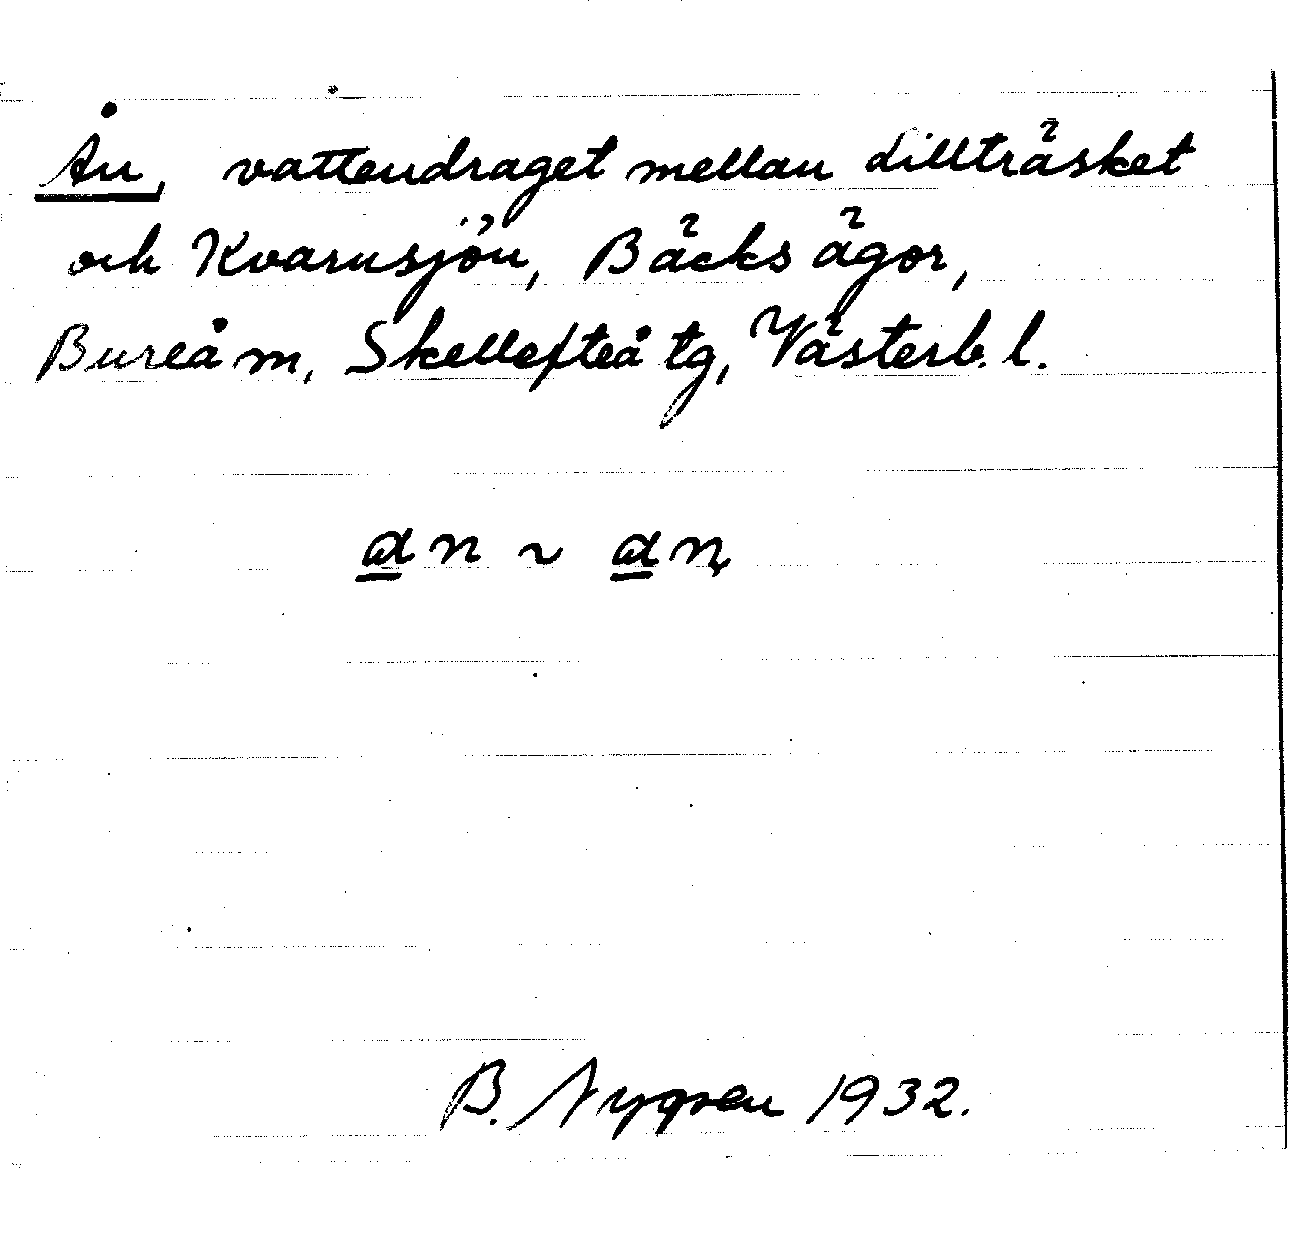 Ån, vattendraget mellan Lillträsket
och Kvarnsjön, Bäcks ägor,
Bureå m, Skellefteå tg, Västerb. l.
a̲n ~ a̲n̨
B. Nygren 1932.